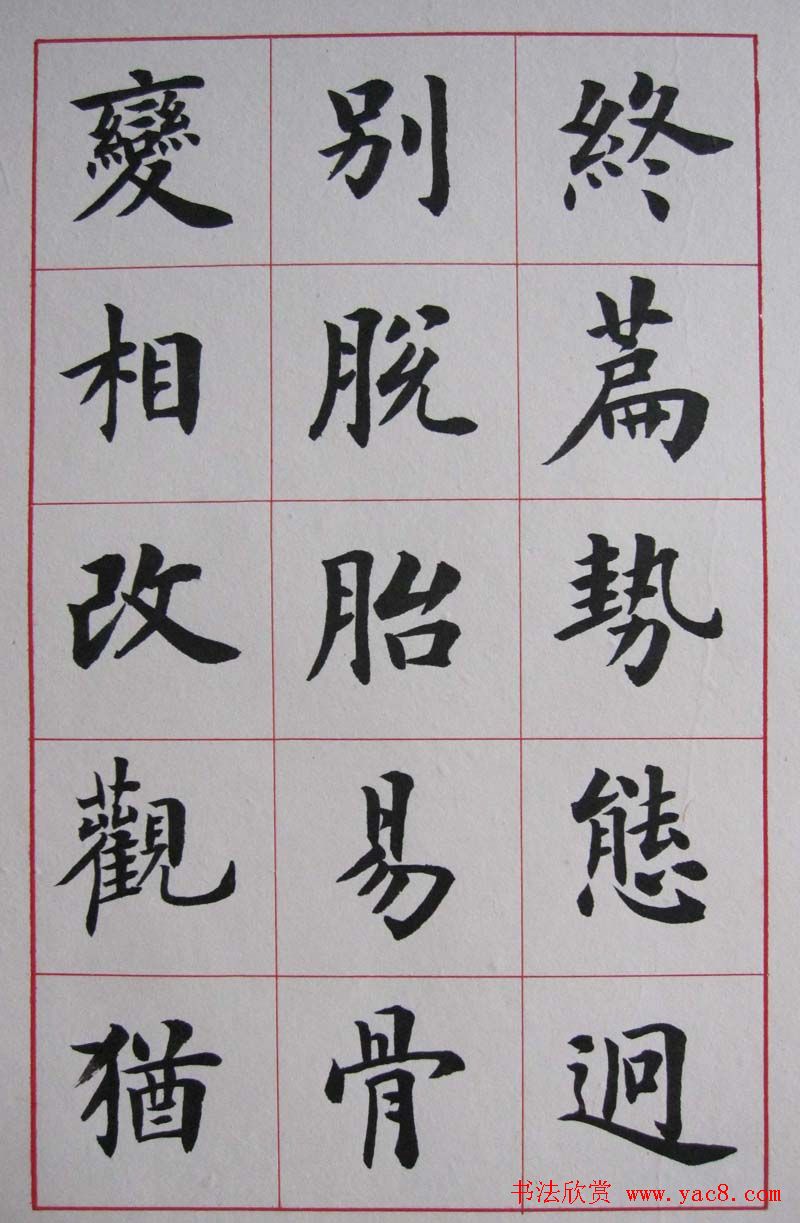 終篇勢態迥
別脫胎易骨
變相改觀猶
书法欣赏 www.yac8.com